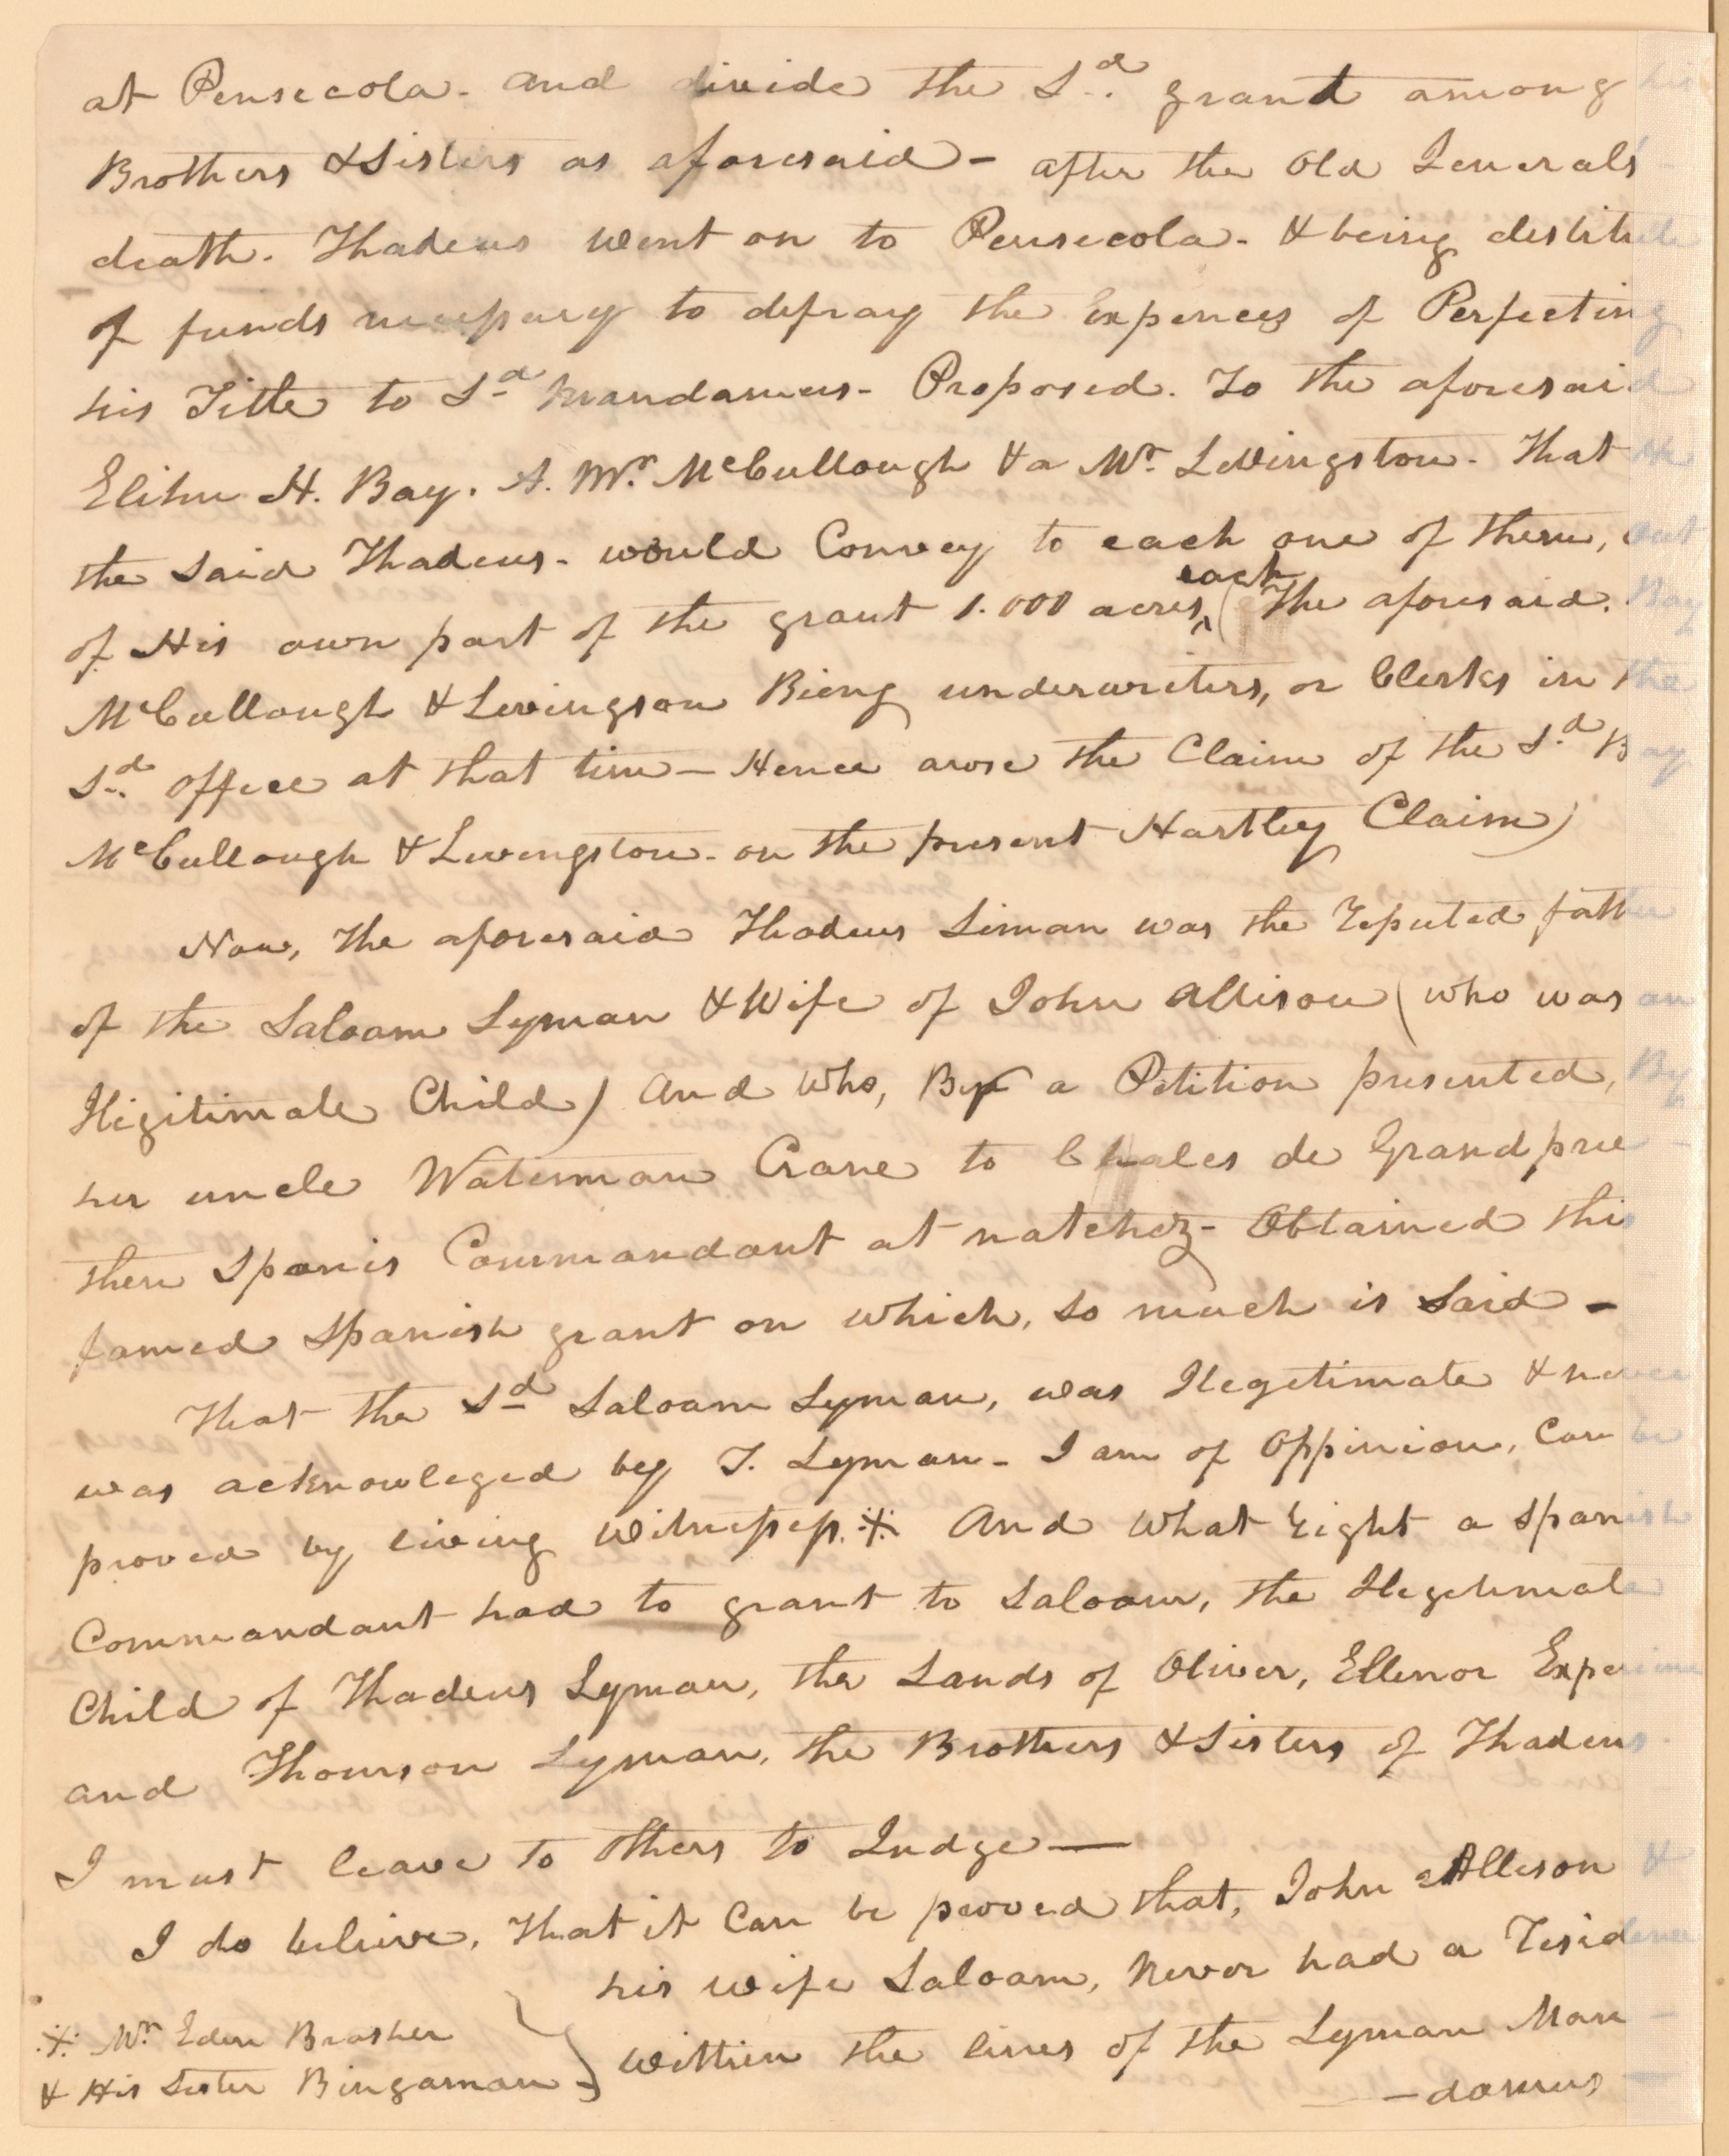 at Pensecola - and divide the Sd. grant among his
Brothers & Sisters as aforesaid - after the Old Generals
death. Thadeus went on to Pensecola - & being destitute
of funds necessary to defray the Expences of Perfecting
his Title to Sd Mandamus - Proposed. To the aforesaid
Elihu H. Bay. A. Mr. McCullough & a Mr. Levingston. That he
the Said Thadeus - would Convey to each one of them, out
of His own part of the grant 1.000 acres, each (The aforesaid. Bay
McCullough & Levingson Bieng underwriters, or Clerks in the
Sd. office at that time - Hence arose the Claim of the Sd. Bay
McCullough & Levengston - on the present Hartley Claim)
Now, The aforesaid Thadeus Liman was the reputed father
of the Saloam Lyman & Wife of John Allison (who was an
Iligitimate Child) And Who, By a Petition presented, By
her uncle Waterman Crane to Chales de Grandprie -
then Spanis Commandant at natchez - Obtained this
famed Spanish grant on which, so much is Said -
That the Sd Saloam Lyman, was Ilegetimate & never
was acknowleged by T. Lyman - I am of Oppinion, Can be
proved by living Witnesses. ※ And What right a Spanish
Commandant had to grant to Saloam, the Ilegetimate
Child of Thadeus Lyman, the Lands of Oliver, Ellenor Experience
and Thomson Lyman, the Brothers & Sisters of Thadeus.
I must leave to Others to Judge —
I do believe, That it Can be proved that, John Allison &
his wife Saloam, Never had a residence
within the lines of the Lyman Man -
- damus -
※ Mr. Eden Brasher
& His Sister Bingaman